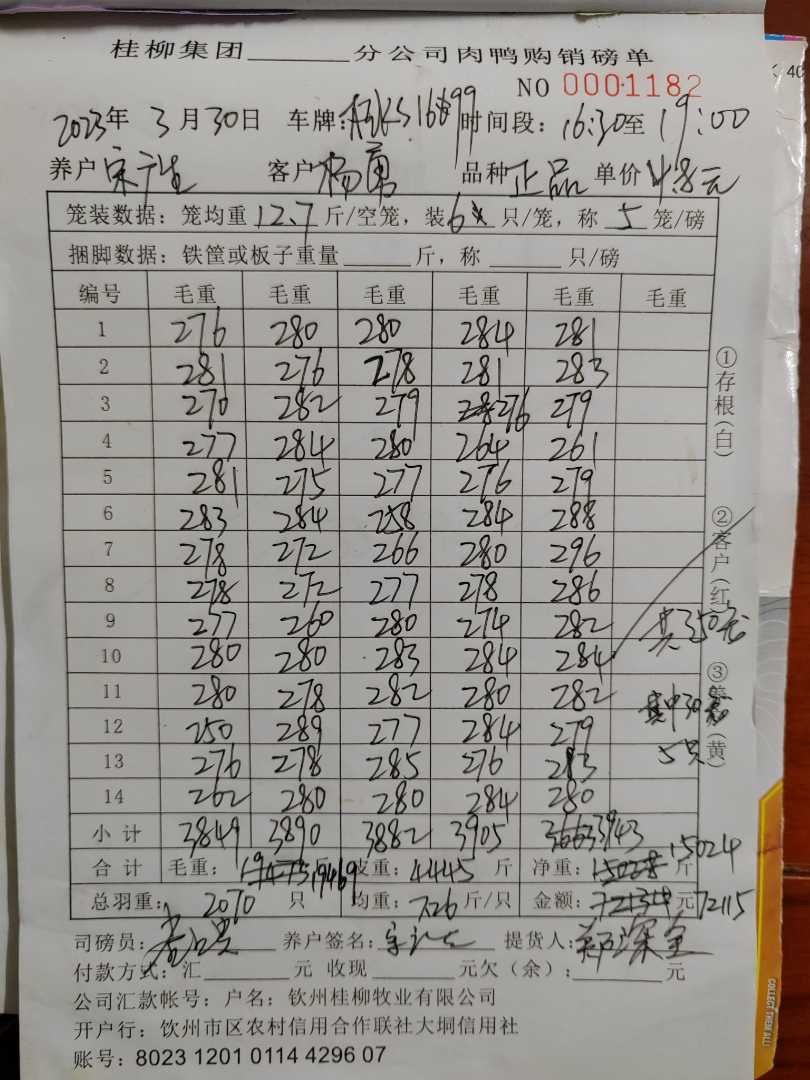 桂柳集团______分公司肉鸭购销磅单
NO 0001182
2023年 3月30日 车牌: 时间段: 16:30至 19:00
养户 客户 杨勇 品种 正品 单价 4.8元
笼装数据: 笼均重 12.7 斤/空笼, 装 6 只/笼, 称 5 笼/磅
捆脚数据: 铁筐或板子重量______斤, 称______只/磅
编号 毛重 毛重 毛重 毛重 毛重 毛重
1 276 280 280 284 281
2 281 276 278 281 283
3 270 282 279 276 279
4 277 284 280 264 261
5 281 275 277 276 279
6 283 284 258 284 288
7 278 272 266 280 296
8 278 272 277 278 286
9 277 260 280 274 282
10 280 280 283 284 284
11 280 278 282 280 282
12 250 289 277 284 279
13 276 278 285 276 283
14 262 280 280 284 280
小计 3849 3890 3882 3905 3663 3943
合计 毛重: 19469 皮重: 4445 斤 净重: 15024 斤
总羽重: 2070 只 均重: 726 斤/只 金额: 72115 元
司磅员: 养户签名: 提货人: 郑深全
付款方式: 汇______元 收现______元欠(余):______元
公司汇款帐号: 户名: 钦州桂柳牧业有限公司
开户行: 钦州市区农村信用合作联社大垌信用社
账号: 8023 1201 0114 4296 07
①存根(白)
②客户(红
③ (黄)
共350
其中30
5只
COLLECT THEM ALL!